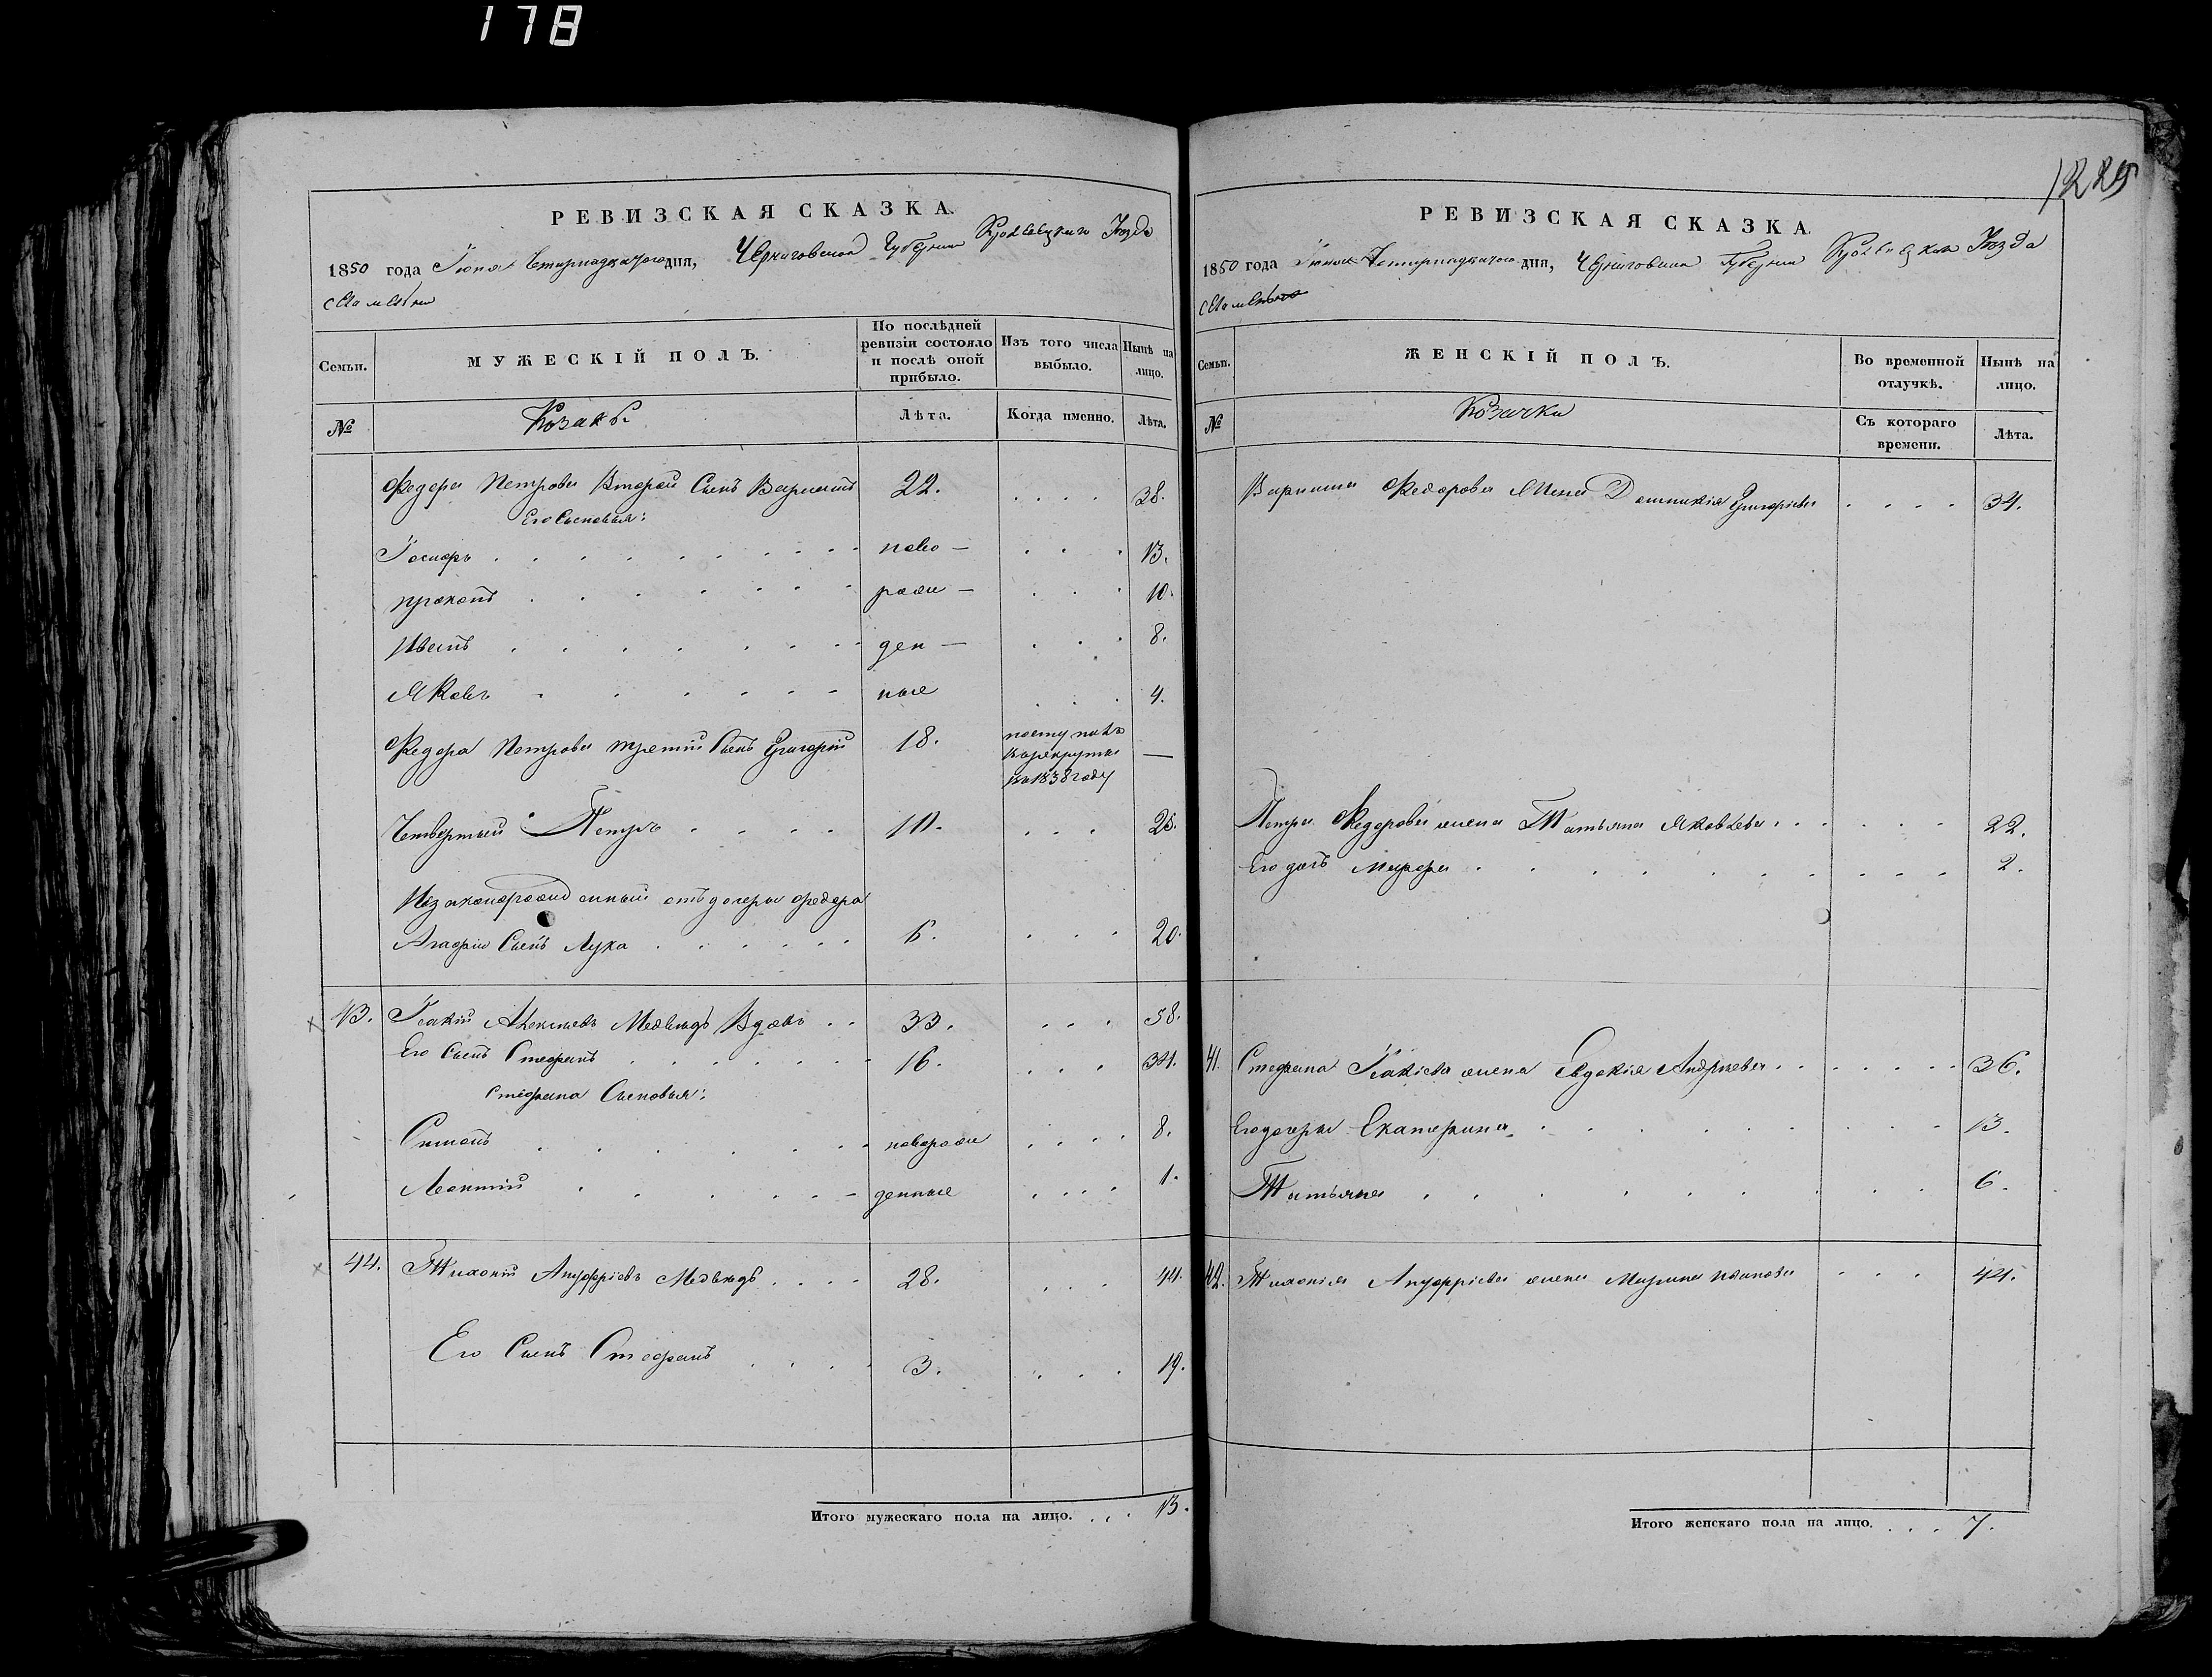 178
1229
РЕВИЗСКАЯ СКАЗКА.
1850 года Іюня Четырнадцатого дня, Черниговской Губернии Кролевецкого Уезда
МУЖЕСКІЙ ПОЛЪ.
Семьи.
По послѣдней ревизіи состояло и послѣ оной прибыло.
Изъ того числа выбыло.
Нынѣ на лицо.
№
Козаки
Лѣта.
Когда именно.
Лѣта.
Федора Петрова Второй Сынъ Варлаамъ 22. 38.
Его Сыновья:
ново — 13.
Прокопъ рож — 10.
Иванъ ден — 8.
Яковъ ные 4.
Федора Петрова третій Сынъ Григорій 18. поступилъ в рекруты в 1838 году —
Четвертый Петръ 10. 26.
Незаконорожденный отъ дочери Федора
Агафіи Сынъ Лука 6. 20.
43. Ісакій Алексеевъ Медведь Вдовъ 33. 58.
Его Сынъ Стефанъ 16. 34.
Стефана Сыновья:
новорож 8.
Леонтий денные 1.
44. Тихоній Ануфріевъ Медведь 28. 44.
Его Сынъ Стефанъ 3. 19.
Итого мужескаго пола на лицо. 13.
РЕВИЗСКАЯ СКАЗКА.
1850 года Іюня Четырнадцатого дня, Черниговской Губернии Кролевецкого Уезда
Семьи.
ЖЕНСКІЙ ПОЛЪ.
Во временной отлучкѣ.
Нынѣ на лицо.
№
Козачки
Съ котораго времени.
Лѣта.
Федорова Жена Домникія Григорьева 34.
Петра Федорова жена Татьяна Яковлева 22.
Его дочь 2.
41. Стефана Ісакіева жена Евдокія Андреева 36.
Его дочери Екатерина 13.
Татьяна 6.
42. Тихонія Ануфріева жена Марина 41.
Итого женскаго пола на лицо. 7.